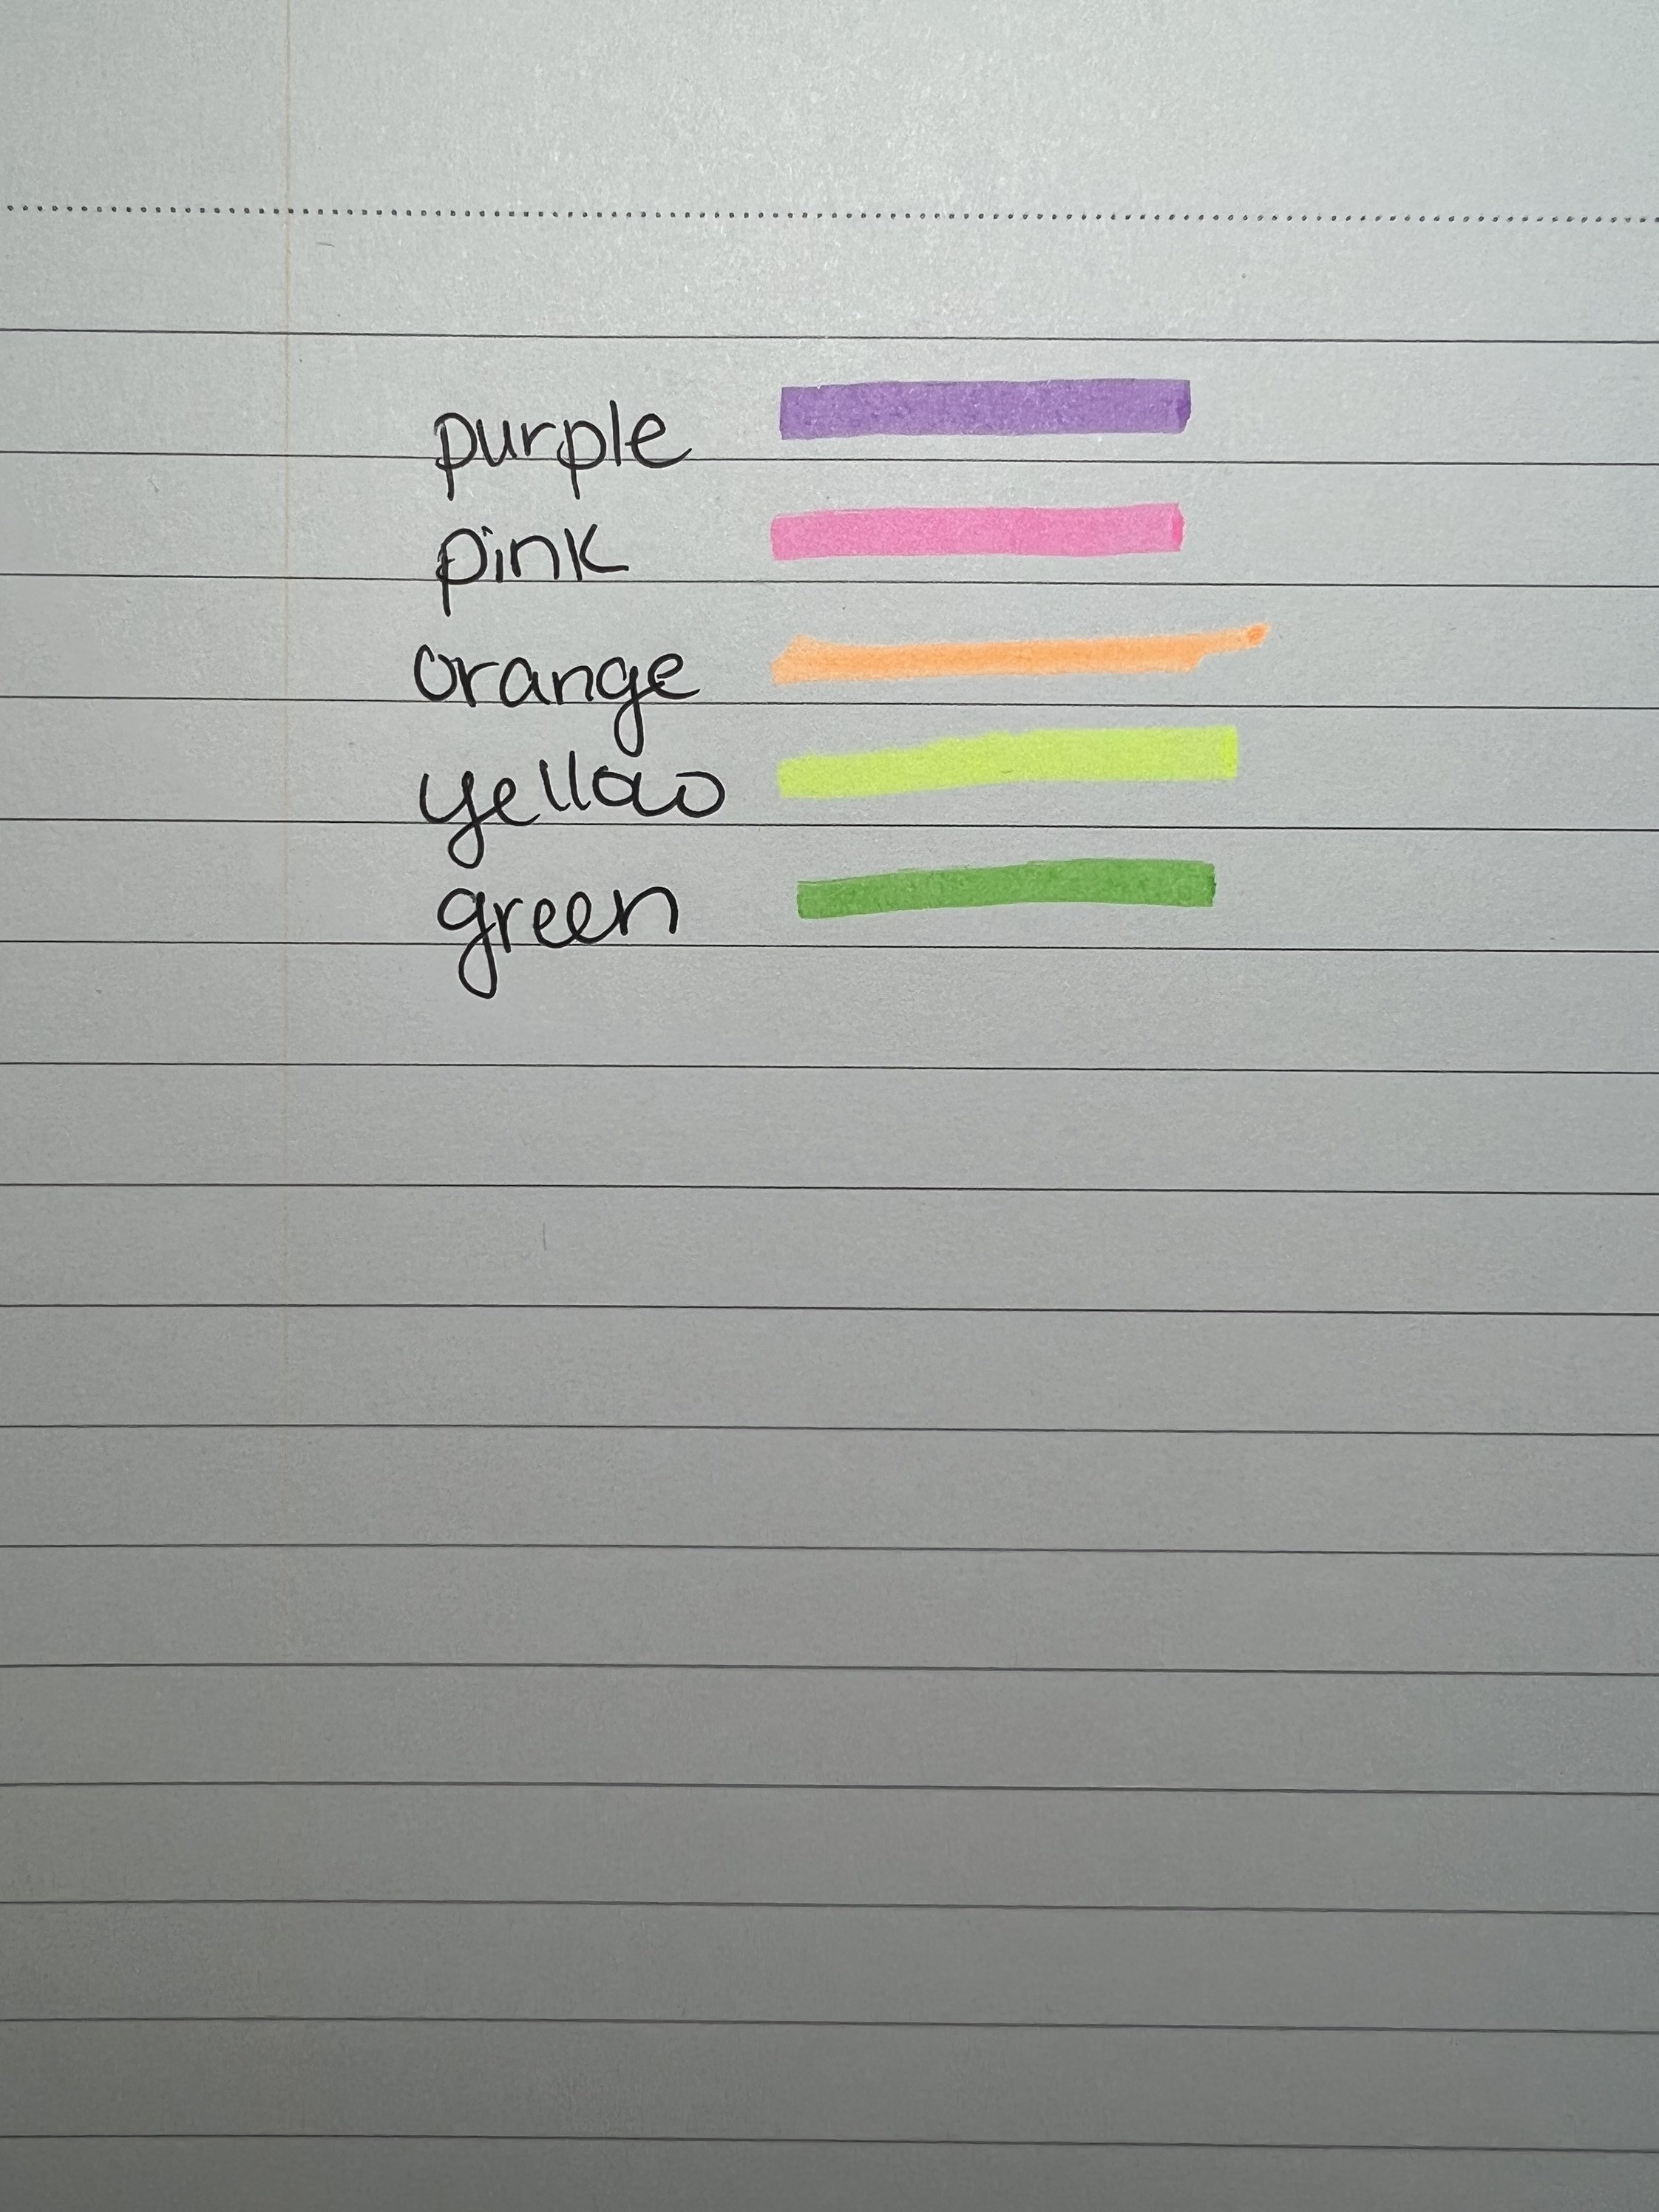 purple
pink
orange
yellow
green